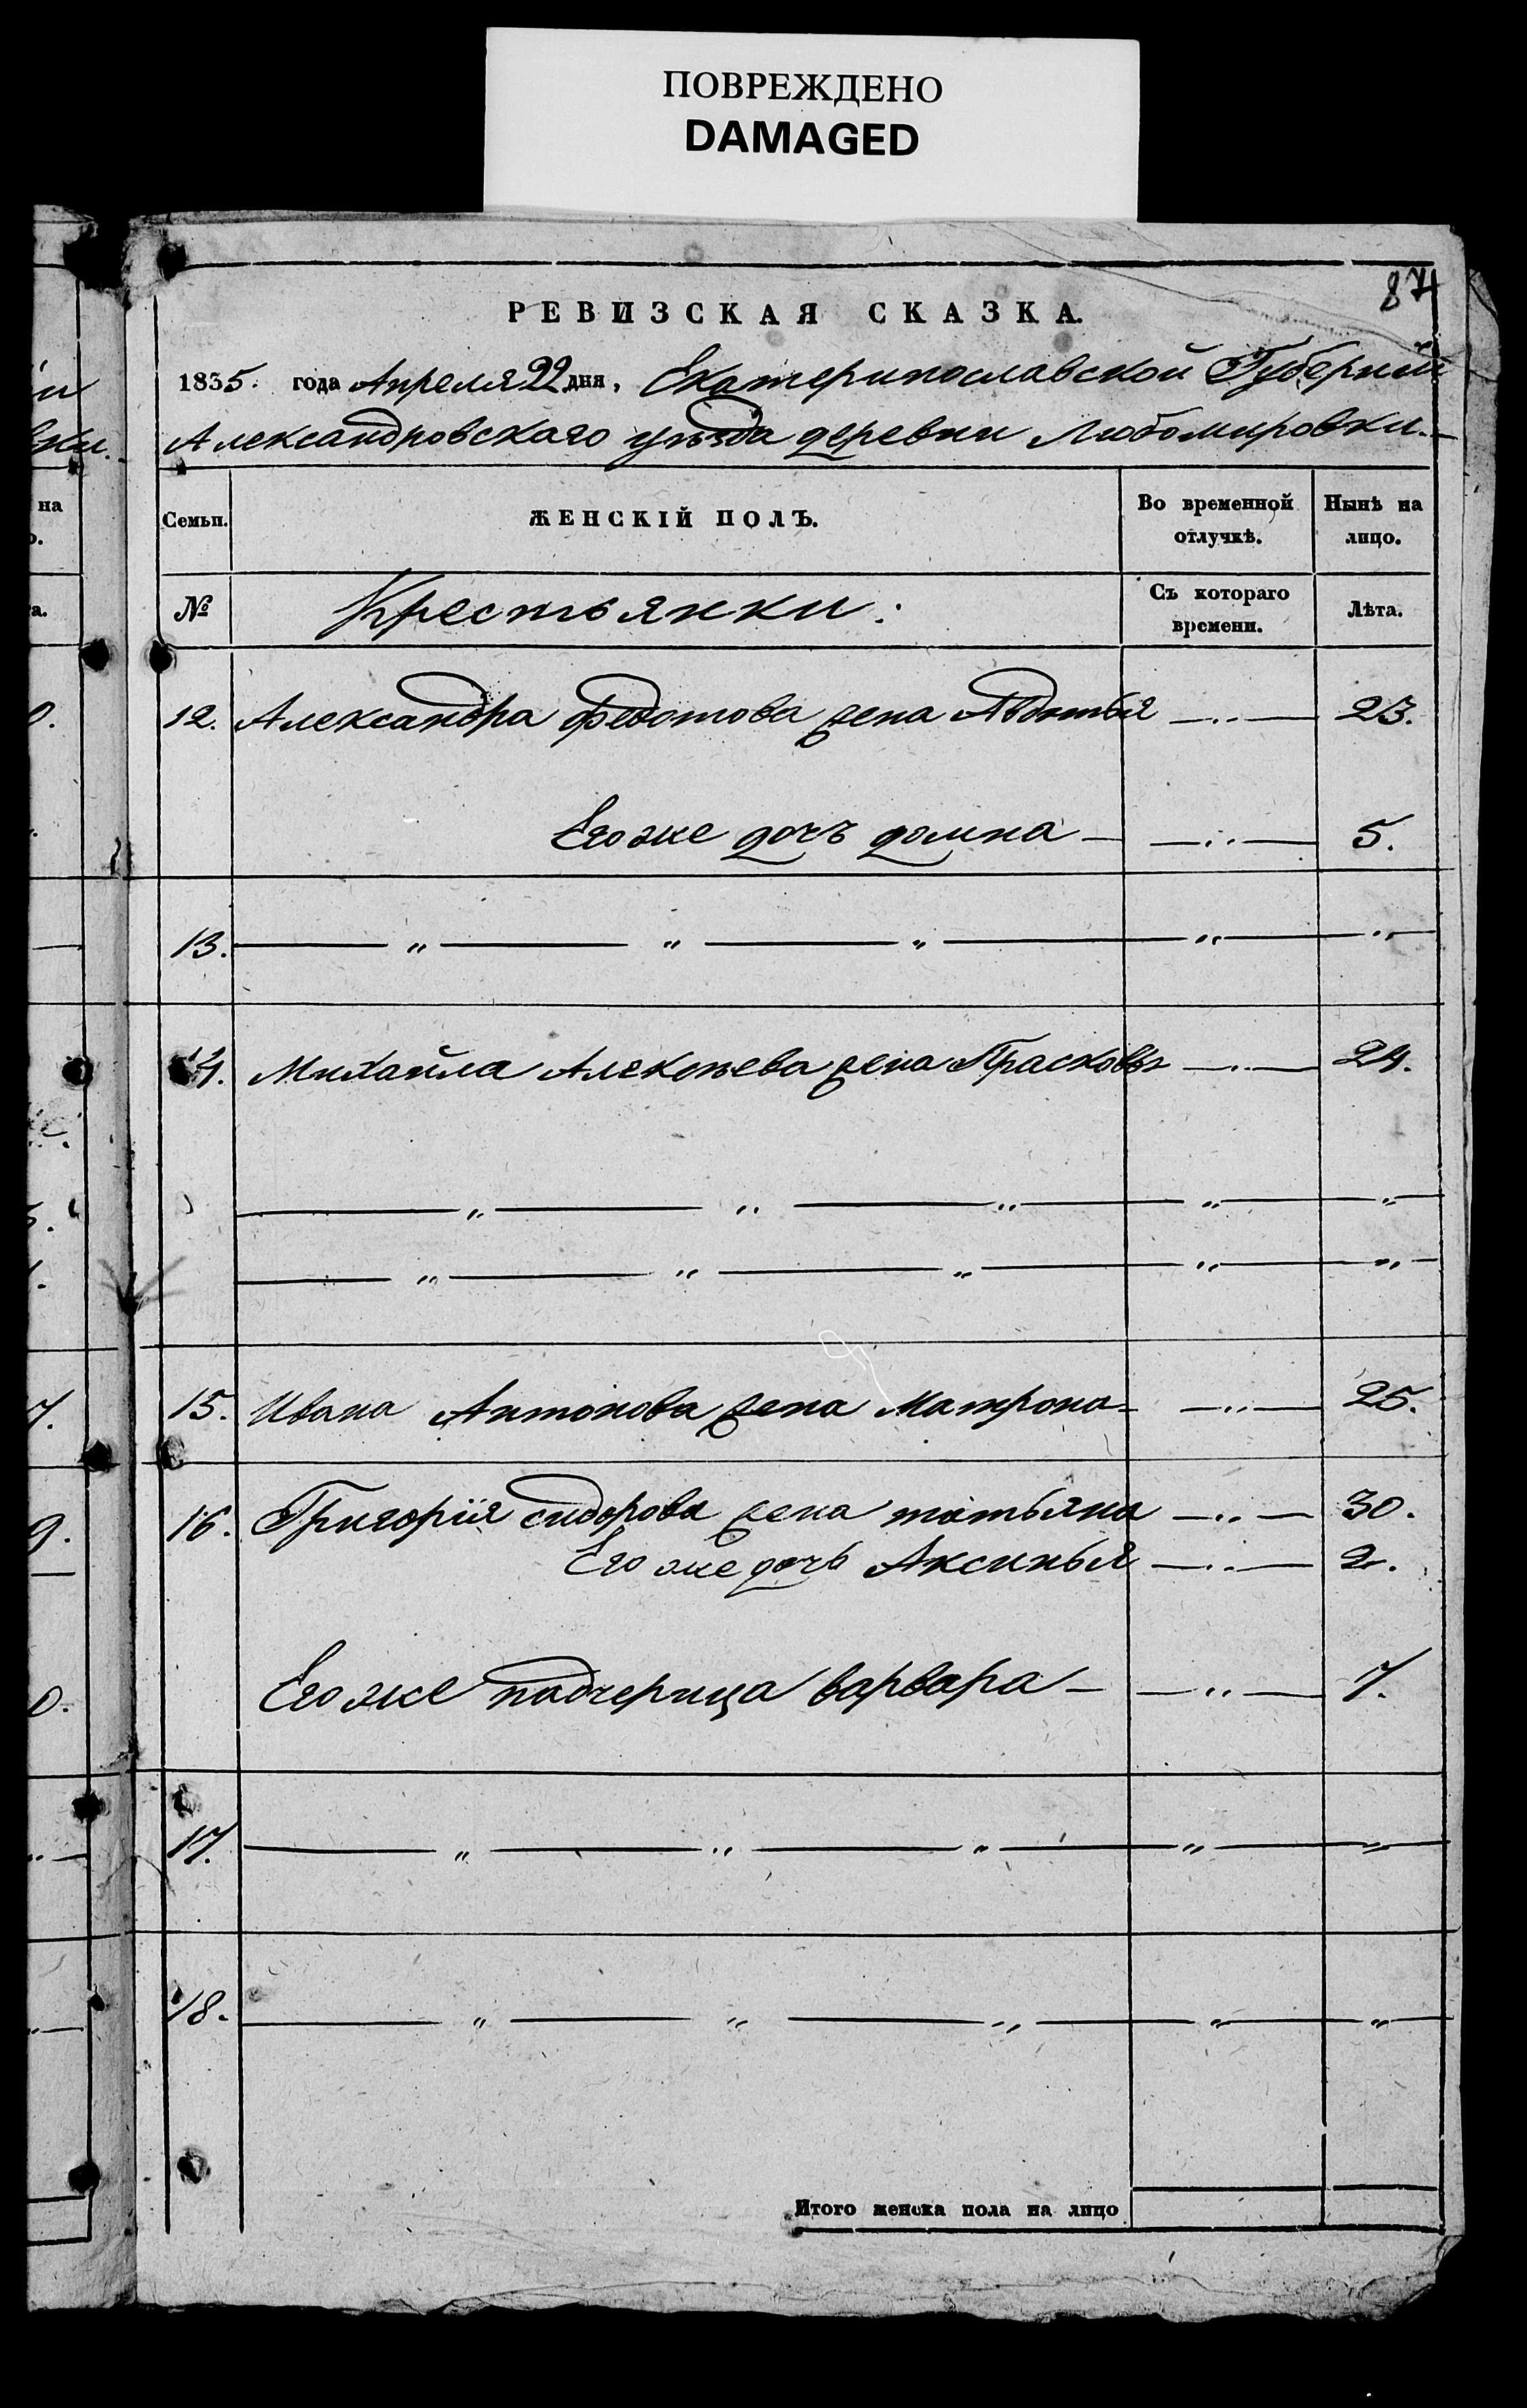 ПОВРЕЖДЕНО
DAMAGED
87
РЕВИЗСКАЯ СКАЗКА.
1835. года Апреля 22 дня, Екатеринославской Губернiи
Александровскаго уѣзда деревни Любомировки.
Семьи. ЖЕНСКІЙ ПОЛЪ. Во временной отлучкѣ. Нынѣ на лицо.
№ Крестьянки. Съ котораго времени. Лѣта.
12. Александра Федотова жена Авдотья —„— 23.
Егоже дочъ домна — —„— 5.
13. — „ — „ — „ — „ — „ —
14. Михайла Алексѣева жена Прасковья —„— 24.
— „ — „ — „ — „ — „ —
— „ — „ — „ — „ — „ —
15. Ивана Антонова жена Матрона — —„— 25.
16. Григорія сидорова жена татьяна —„— 30.
Егоже дочь Аксинья —„— 2.
Егоже падчерица варвара — —„— 7.
17. — „ — „ — „ — „ — „ —
18. — „ — „ — „ — „ — „ —
Итого женска пола на лицо